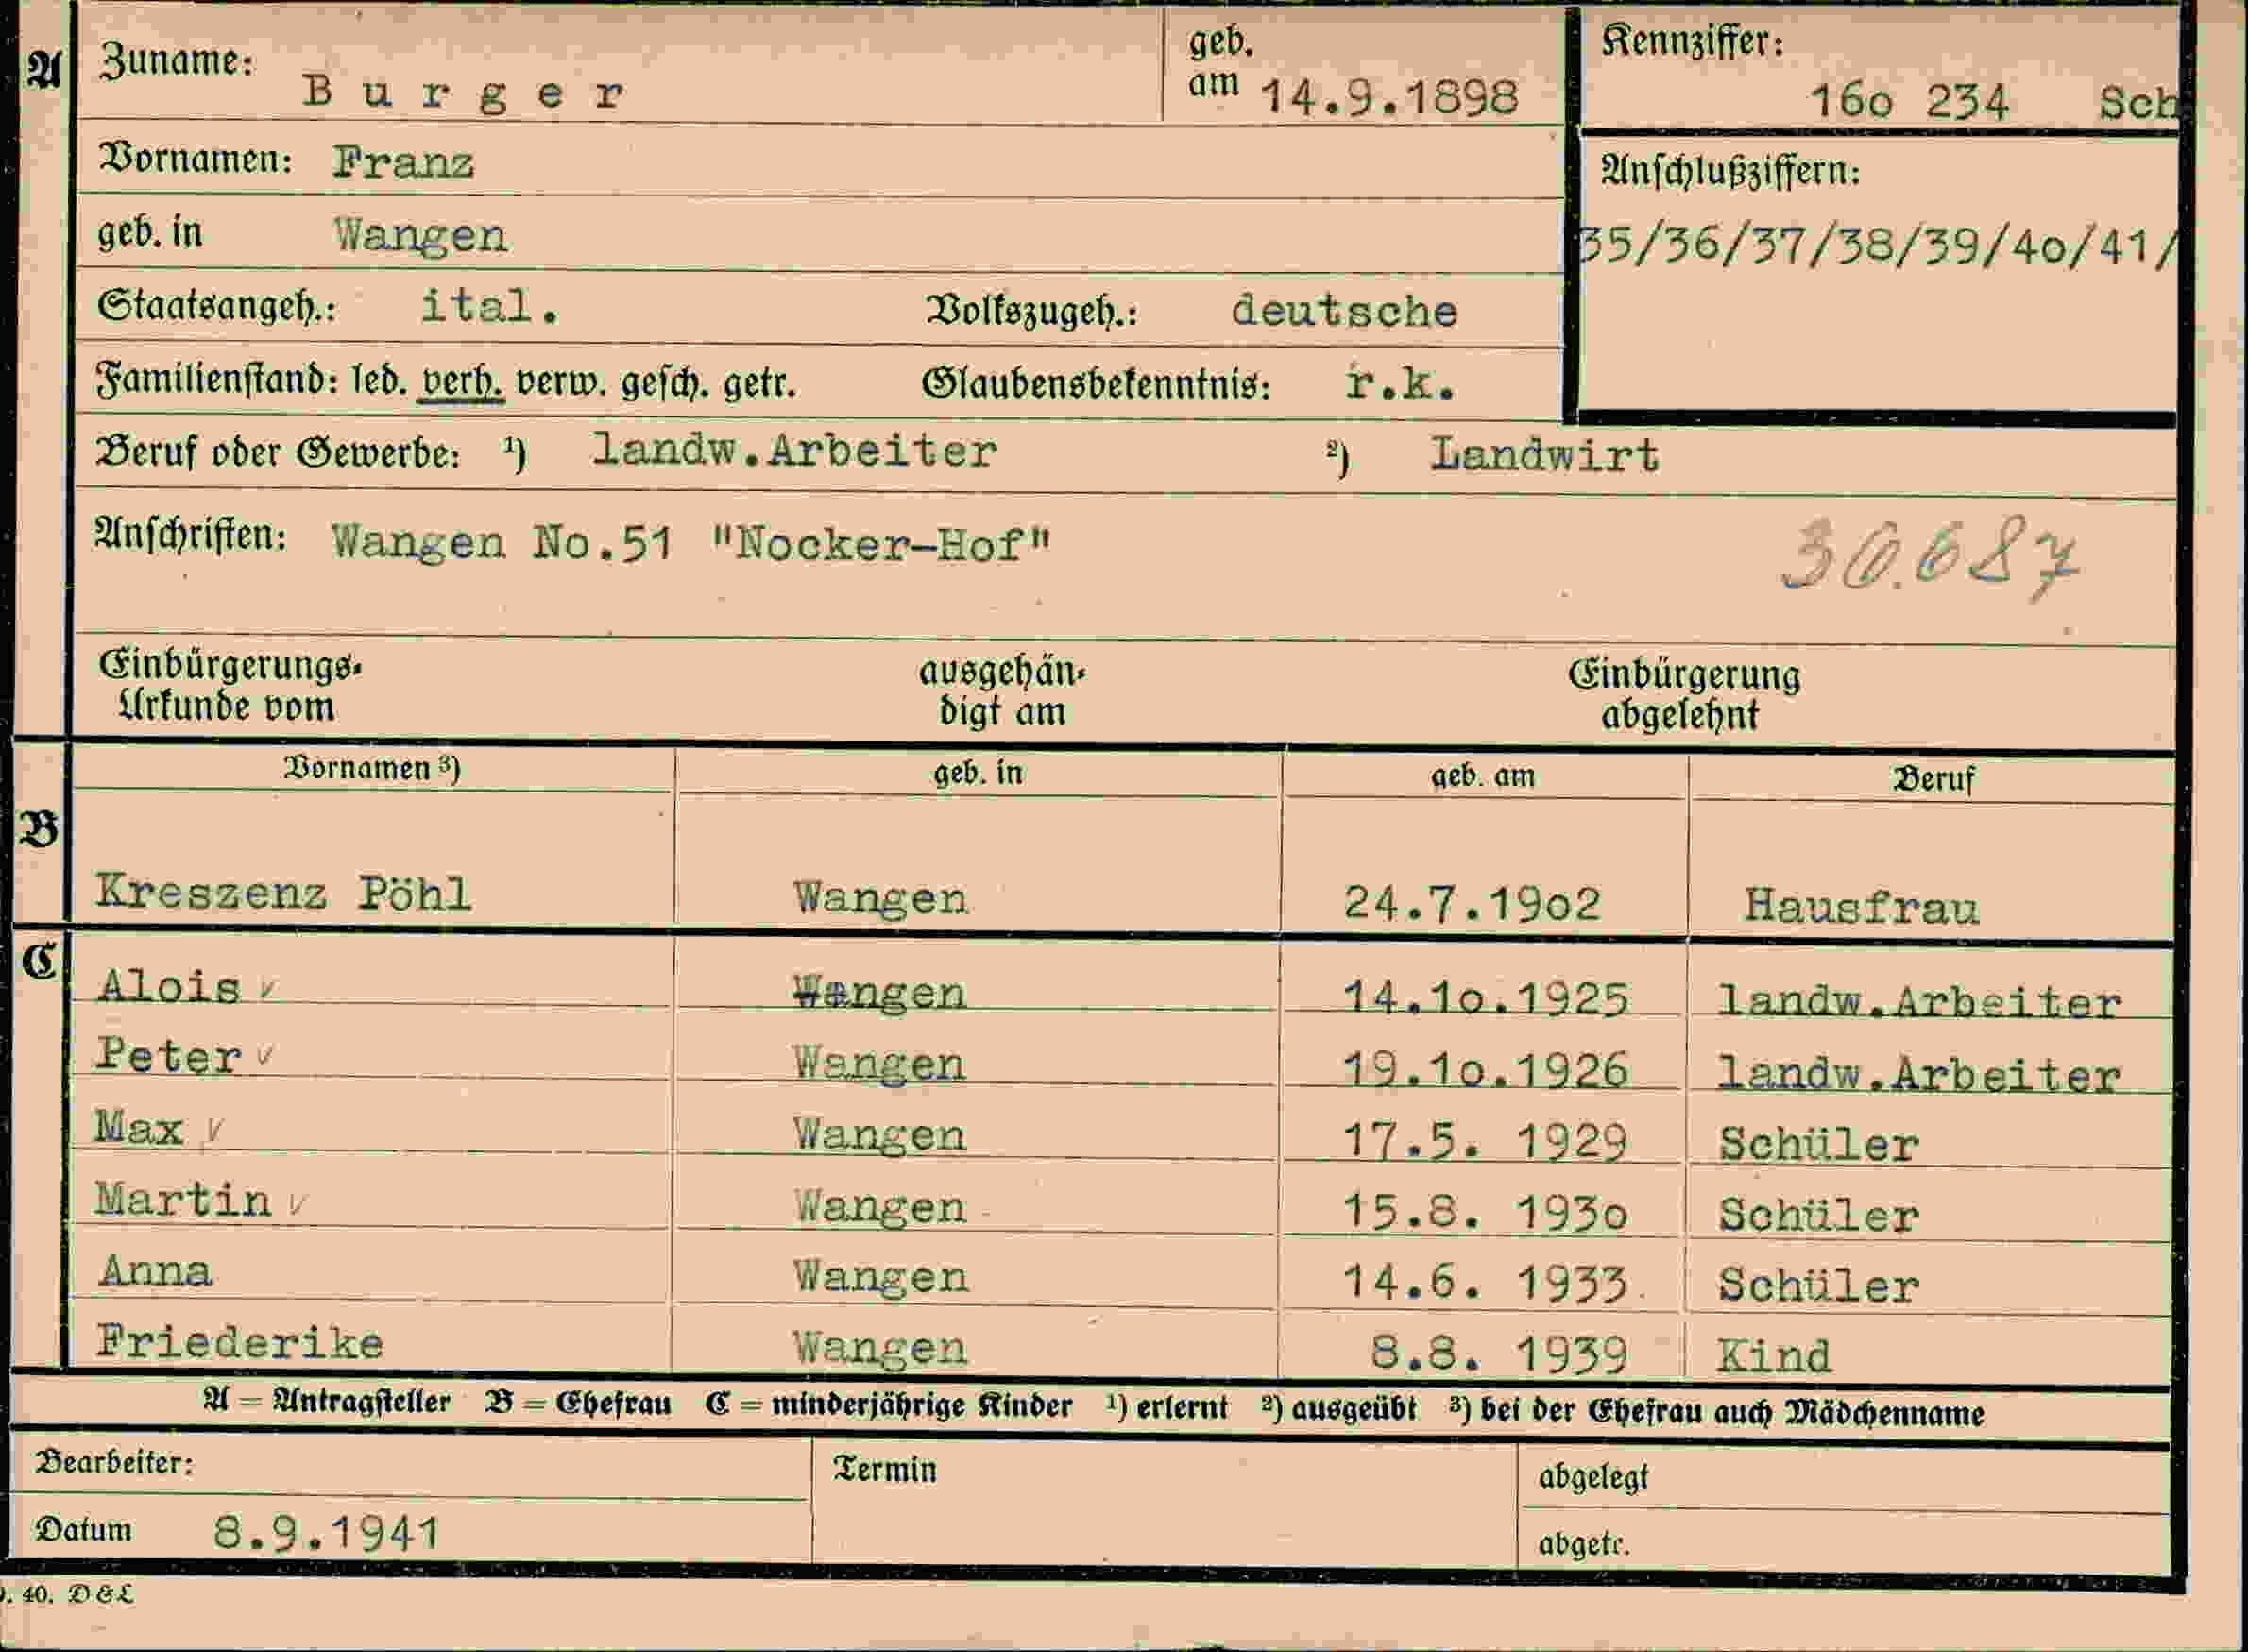 A Zuname: Burger geb. am 14.9.1898 Kennziffer: 16o 234 Sch
Vornamen: Franz Anschlußziffern:
geb. in Wangen 35/36/37/38/39/4o/41/
Staatsangeh.: ital. Volkszugeh.: deutsche
Familienstand: led. verh. verw. gesch. getr. Glaubensbekenntnis: r.k.
Beruf oder Gewerbe: ¹) landw.Arbeiter ²) Landwirt
Anschriften: Wangen No.51 "Nocker-Hof" 30.687
Einbürgerungs- ausgehän- Einbürgerung
Urkunde vom digt am abgelehnt
Vornamen ³) geb. in geb. am Beruf
B
Kreszenz Pöhl Wangen 24.7.19o2 Hausfrau
C
Alois Wangen 14.1o.1925 landw.Arbeiter
Peter Wangen 19.1o.1926 landw.Arbeiter
Max Wangen 17.5. 1929 Schüler
Martin Wangen 15.8. 193o Schüler
Anna Wangen 14.6. 1933 Schüler
Friederike Wangen 8.8. 1939 Kind
A = Antragsteller B = Ehefrau C = minderjährige Kinder ¹) erlernt ²) ausgeübt ³) bei der Ehefrau auch Mädchenname
Bearbeiter: Termin abgelegt
Datum 8.9.1941 abgetr.
40. D&L